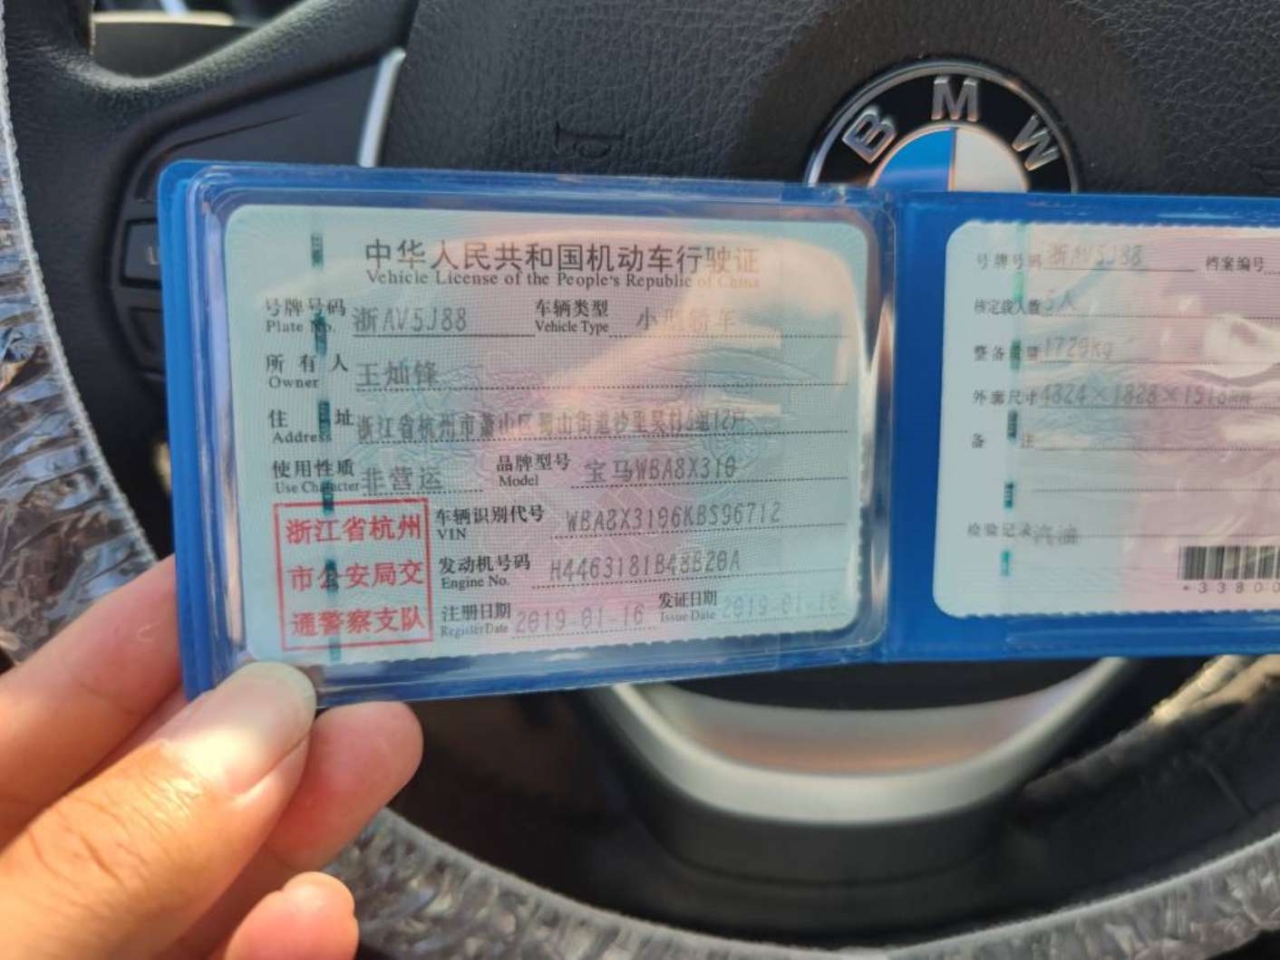 BMW
中华人民共和国机动车行驶证
Vehicle License of the People's Republic of China
号牌号码 浙AV5J88 车辆类型 小型轿车
Plate No. Vehicle Type
所有人 王灿锋
Owner
住址 浙江省杭州市萧山区蜀山街道沙里吴村5组12户
Address
使用性质 非营运 品牌型号 宝马WBA8X310
Use Character Model
浙江省杭州
市公安局交
通警察支队
车辆识别代号 WBA8X3106KBS96712
VIN
发动机号码 H4463181B48B20A
Engine No.
注册日期 2019-01-16 发证日期 2019-01-16
Register Date Issue Date
号牌号码 浙AV5J88 档案编号
核定载人数 5人
整备质量 1729kg
外廓尺寸 4824×1828×1518mm
备注
检验记录 汽油